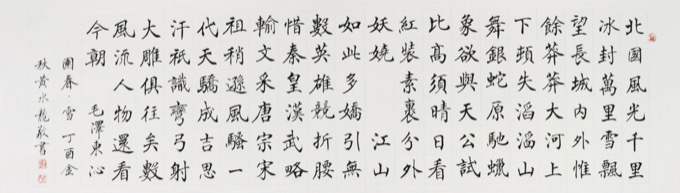 北國風光千里
冰封萬里雪飄
望長城內外惟
餘莽莽大河上
下頓失滔滔山
舞銀蛇原馳蠟
象欲與天公試
比高須晴日看
紅裝素裹分外
妖嬈 江山
如此多嬌引無
數英雄競折腰
惜秦皇漢武略
輸文采唐宗宋
祖稍遜風騷一
代天驕成吉思
汗祇識彎弓射
大雕俱往矣數
風流人物還看
今朝 毛澤東沁
園春 雪 丁酉金
秋黃水龍敬書